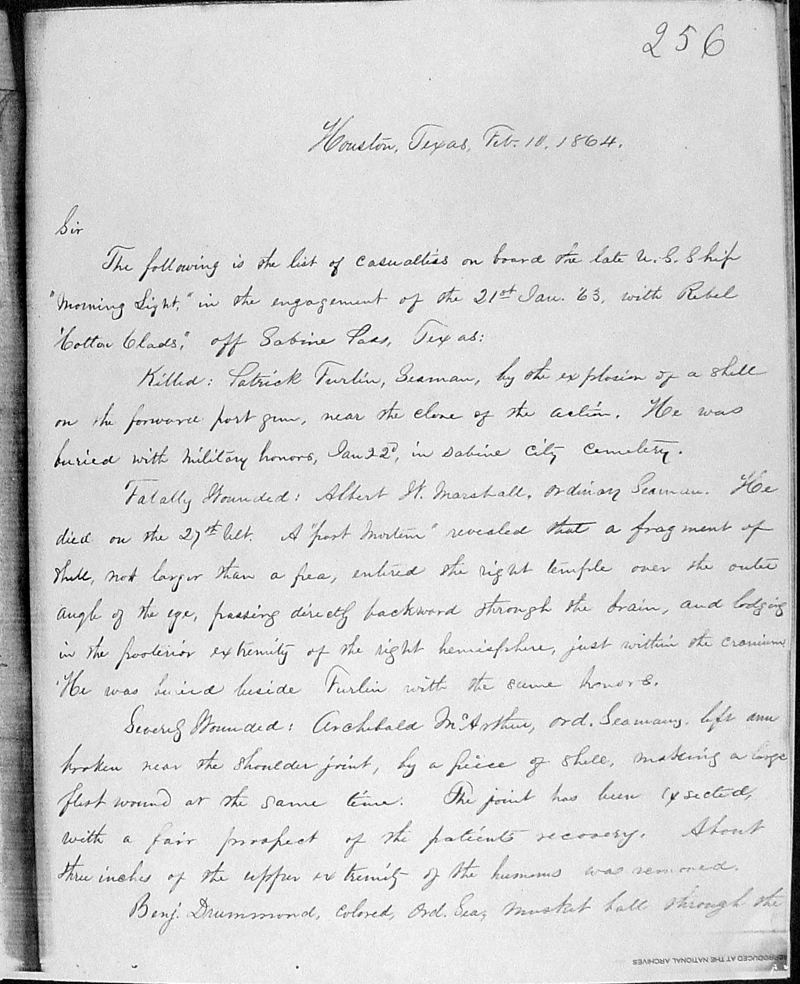 256
Houston, Texas, Feb. 10, 1864.
Sir
The following is the list of casualties on board the late U.S. Ship
"Morning Light," in the engagement of the 21st Jan. '63, with Rebel
"Cotton Clads," off Sabine Pass, Texas:
Killed: Patrick Furlin, Seaman, by the explosion of a shell
on the forward port gun, near the close of the action. He was
buried with military honors, Jan 22d, in Sabine City Cemetery.
Fatally Wounded: Albert W. Marshall, ordinary Seaman. He
died on the 27th Ult. A "post mortem" revealed that a fragment of
shell, not larger than a pea, entered the right temple over the outer
angle of the eye, passing directly backward through the brain, and lodging
in the posterior extremity of the right hemisphere, just within the cranium
He was buried beside Furlin with the same honors.
Severely Wounded: Archibald McArthur, ord. Seaman, left arm
broken near the shoulder joint, by a piece of shell, making a large
flesh wound at the same time. The joint has been exsected,
with a fair prospect of the patients recovery. About
three inches of the upper extremity of the humerus was removed.
Benj. Drummond, colored, Ord. Sea, musket ball through the
REPRODUCED AT THE NATIONAL ARCHIVES